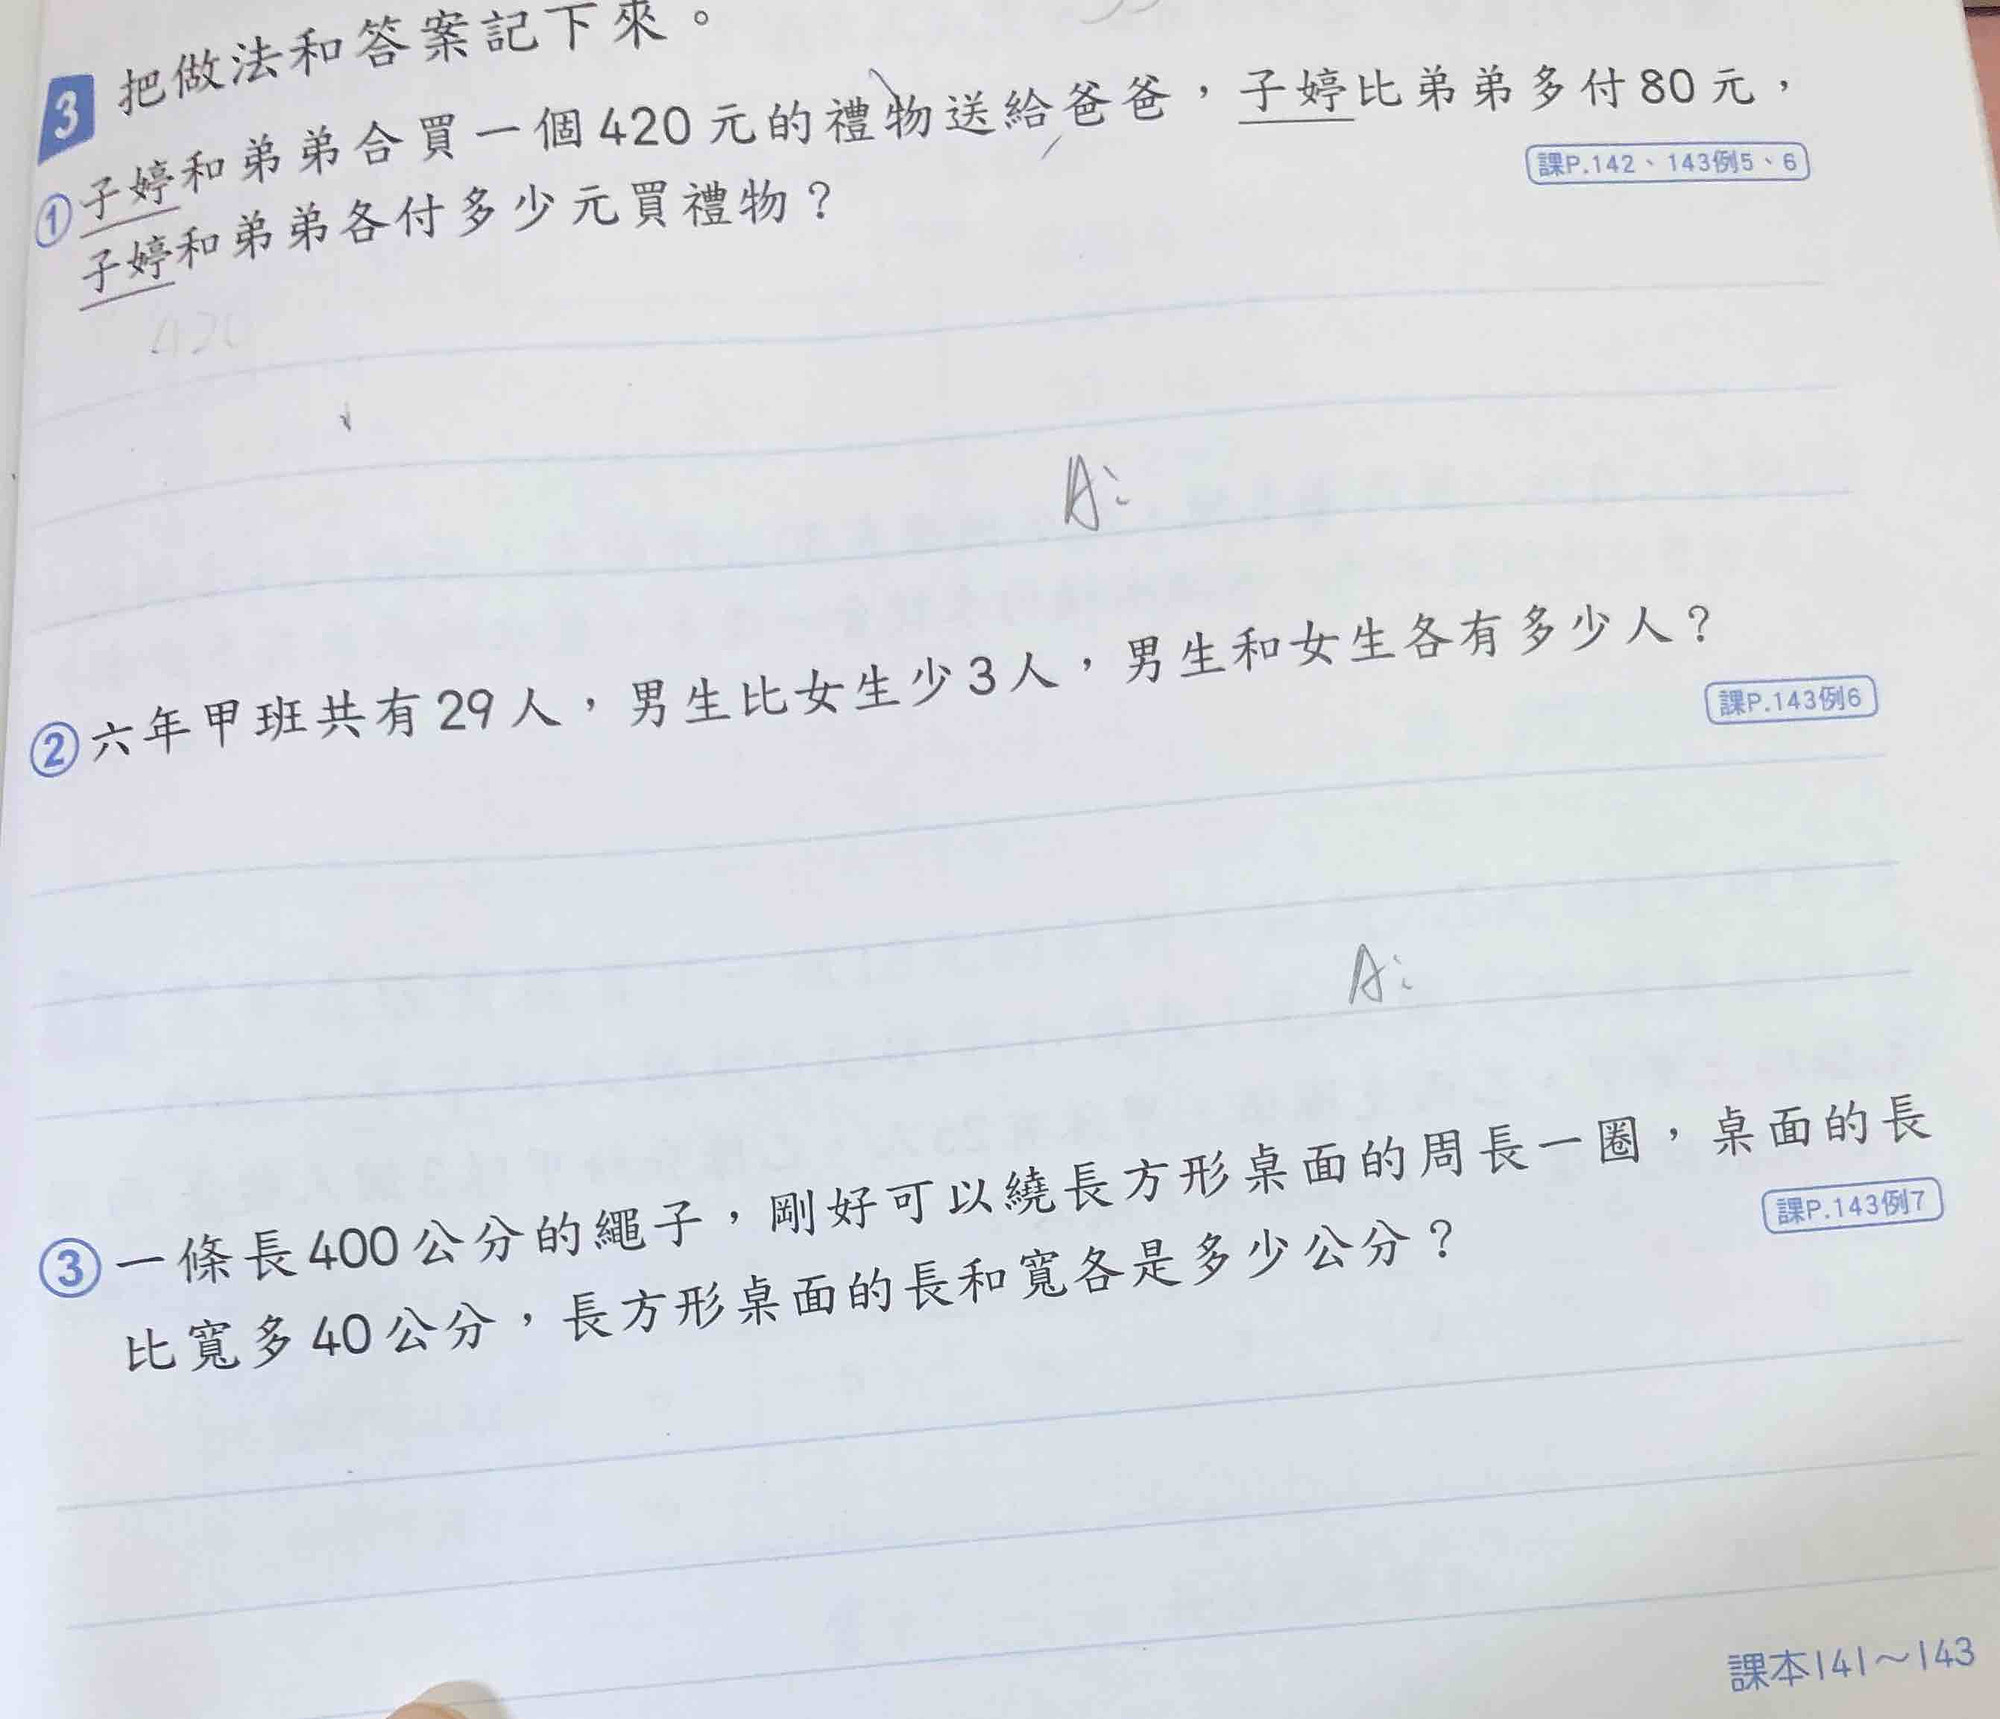 3 把做法和答案記下來。
①子婷和弟弟合買一個420元的禮物送給爸爸，子婷比弟弟多付80元，
子婷和弟弟各付多少元買禮物？
課P.142、143例5、6
420
A:
②六年甲班共有29人，男生比女生少3人，男生和女生各有多少人？
課P.143例6
A:
③一條長400公分的繩子，剛好可以繞長方形桌面的周長一圈，桌面的長
比寬多40公分，長方形桌面的長和寬各是多少公分？
課P.143例7
課本141～143